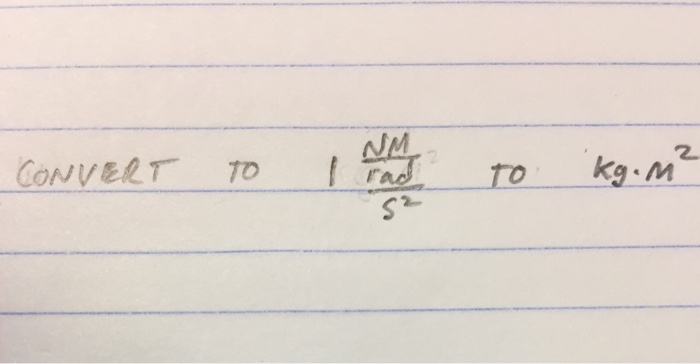 CONVERT TO 1 NM/rad/s² TO kg·m²